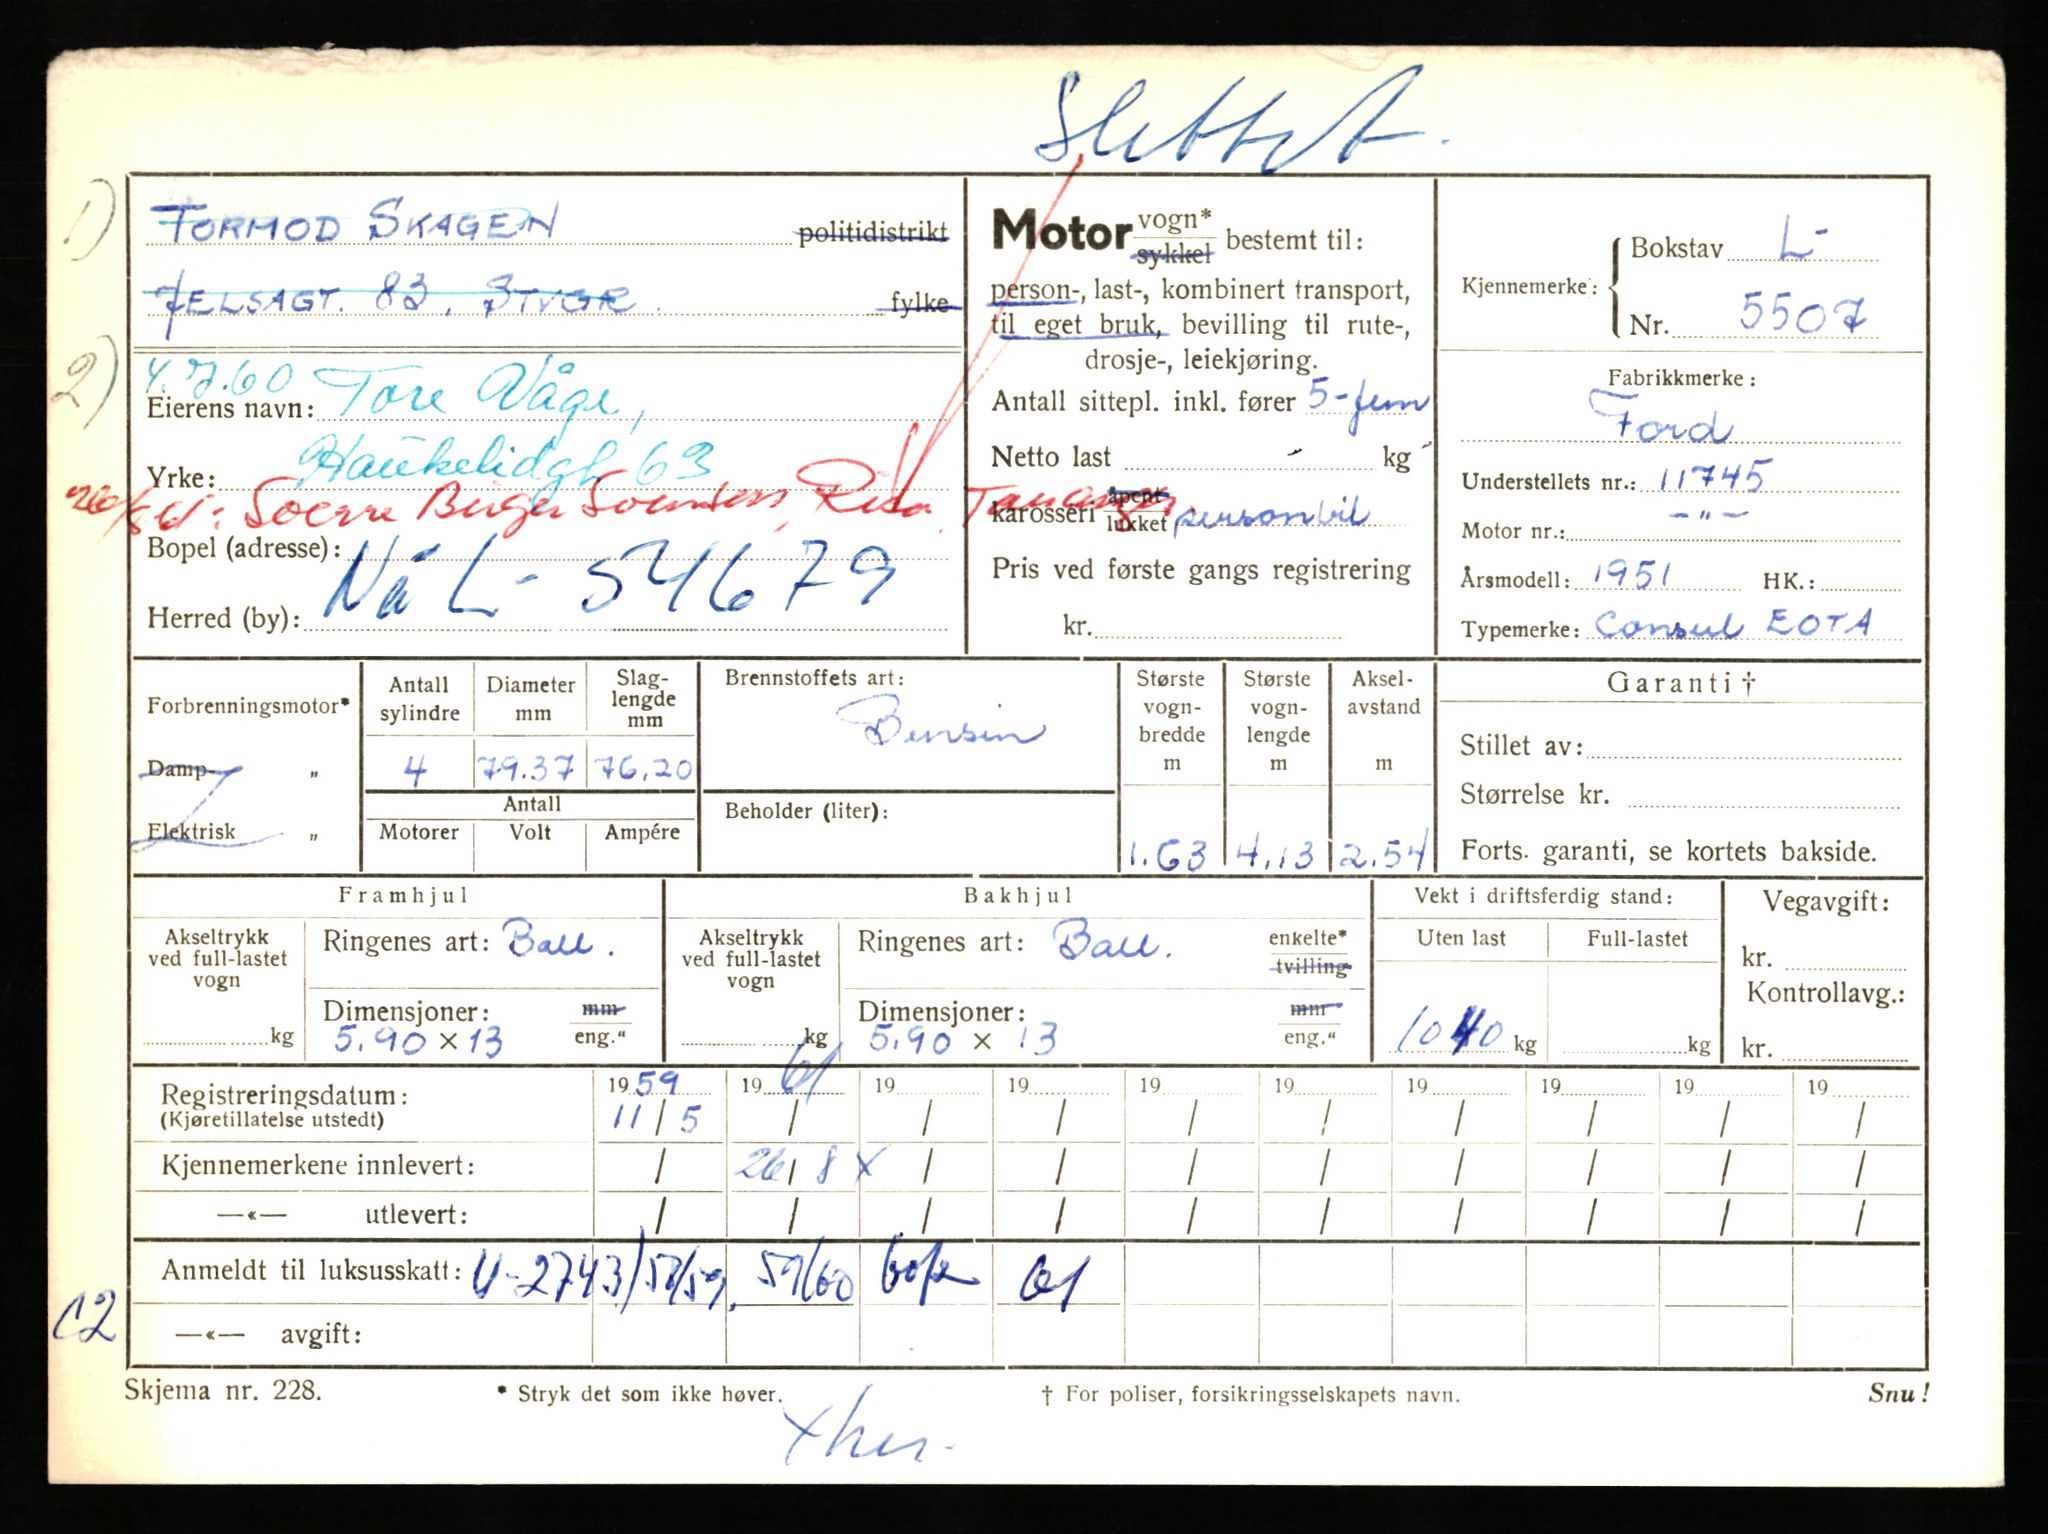 Slettet.
1)
FORMOD SKAGEN politidistrikt
JELSAGT. 83, STVGR. fylke
2)
4.7.60 Tore Våge,
Eierens navn:
Haukelidgt 63
Yrke:
26/8 61: Soerre Birger Soensen, Risa, Tananger
Bopel (adresse):
Nå L- 54679
Herred (by):
Motor vogn* sykkel bestemt til:
person-, last-, kombinert transport,
til eget bruk, bevilling til rute-,
drosje-, leiekjøring.
Antall sittepl. inkl. fører 5-fem
Netto last - kg
karosseri åpent lukket personbil
Pris ved første gangs registrering
kr.
Kjennemerke: Bokstav L-
Nr. 5507
Fabrikkmerke:
Ford
Understellets nr.: 11745
Motor nr.: -"-
Årsmodell: 1951 HK.:
Typemerke: Consul EOTA
Forbrenningsmotor*
Damp- "
Elektrisk "
Antall sylindre
4
Diameter mm
79.37
Slag-
lengde
mm
76.20
Antall
Motorer Volt Ampére
Brennstoffets art:
Bensin
Beholder (liter):
Største
vogn-
bredde
m
1.63
Største
vogn-
lengde
m
4.13
Aksel-
avstand
m
2.54
Garanti †
Stillet av:
Størrelse kr.
Forts. garanti, se kortets bakside.
Framhjul
Akseltrykk
ved full-lastet
vogn
kg
Ringenes art: Ball.
Dimensjoner: mm
5.90 × 13 eng."
Bakhjul
Akseltrykk
ved full-lastet
vogn
kg
Ringenes art: Ball. enkelte*
tvilling
Dimensjoner: mm
5.90 × 13 eng."
Vekt i driftsferdig stand:
Uten last Full-lastet
1040 kg kg
Vegavgift:
kr.
Kontrollavg.:
kr.
Registreringsdatum: 1959 1961 19 19 19 19 19 19 19 19
(Kjøretillatelse utstedt) 11/5 / / / / / / / / /
Kjennemerkene innlevert: / 26/8 x / / / / / / / /
—«— utlevert: / / / / / / / / / /
Anmeldt til luksusskatt: U-2743/58/59, 59/60 61
C2
—«— avgift:
Skjema nr. 228. * Stryk det som ikke høver. † For poliser, forsikringsselskapets navn. Snu!